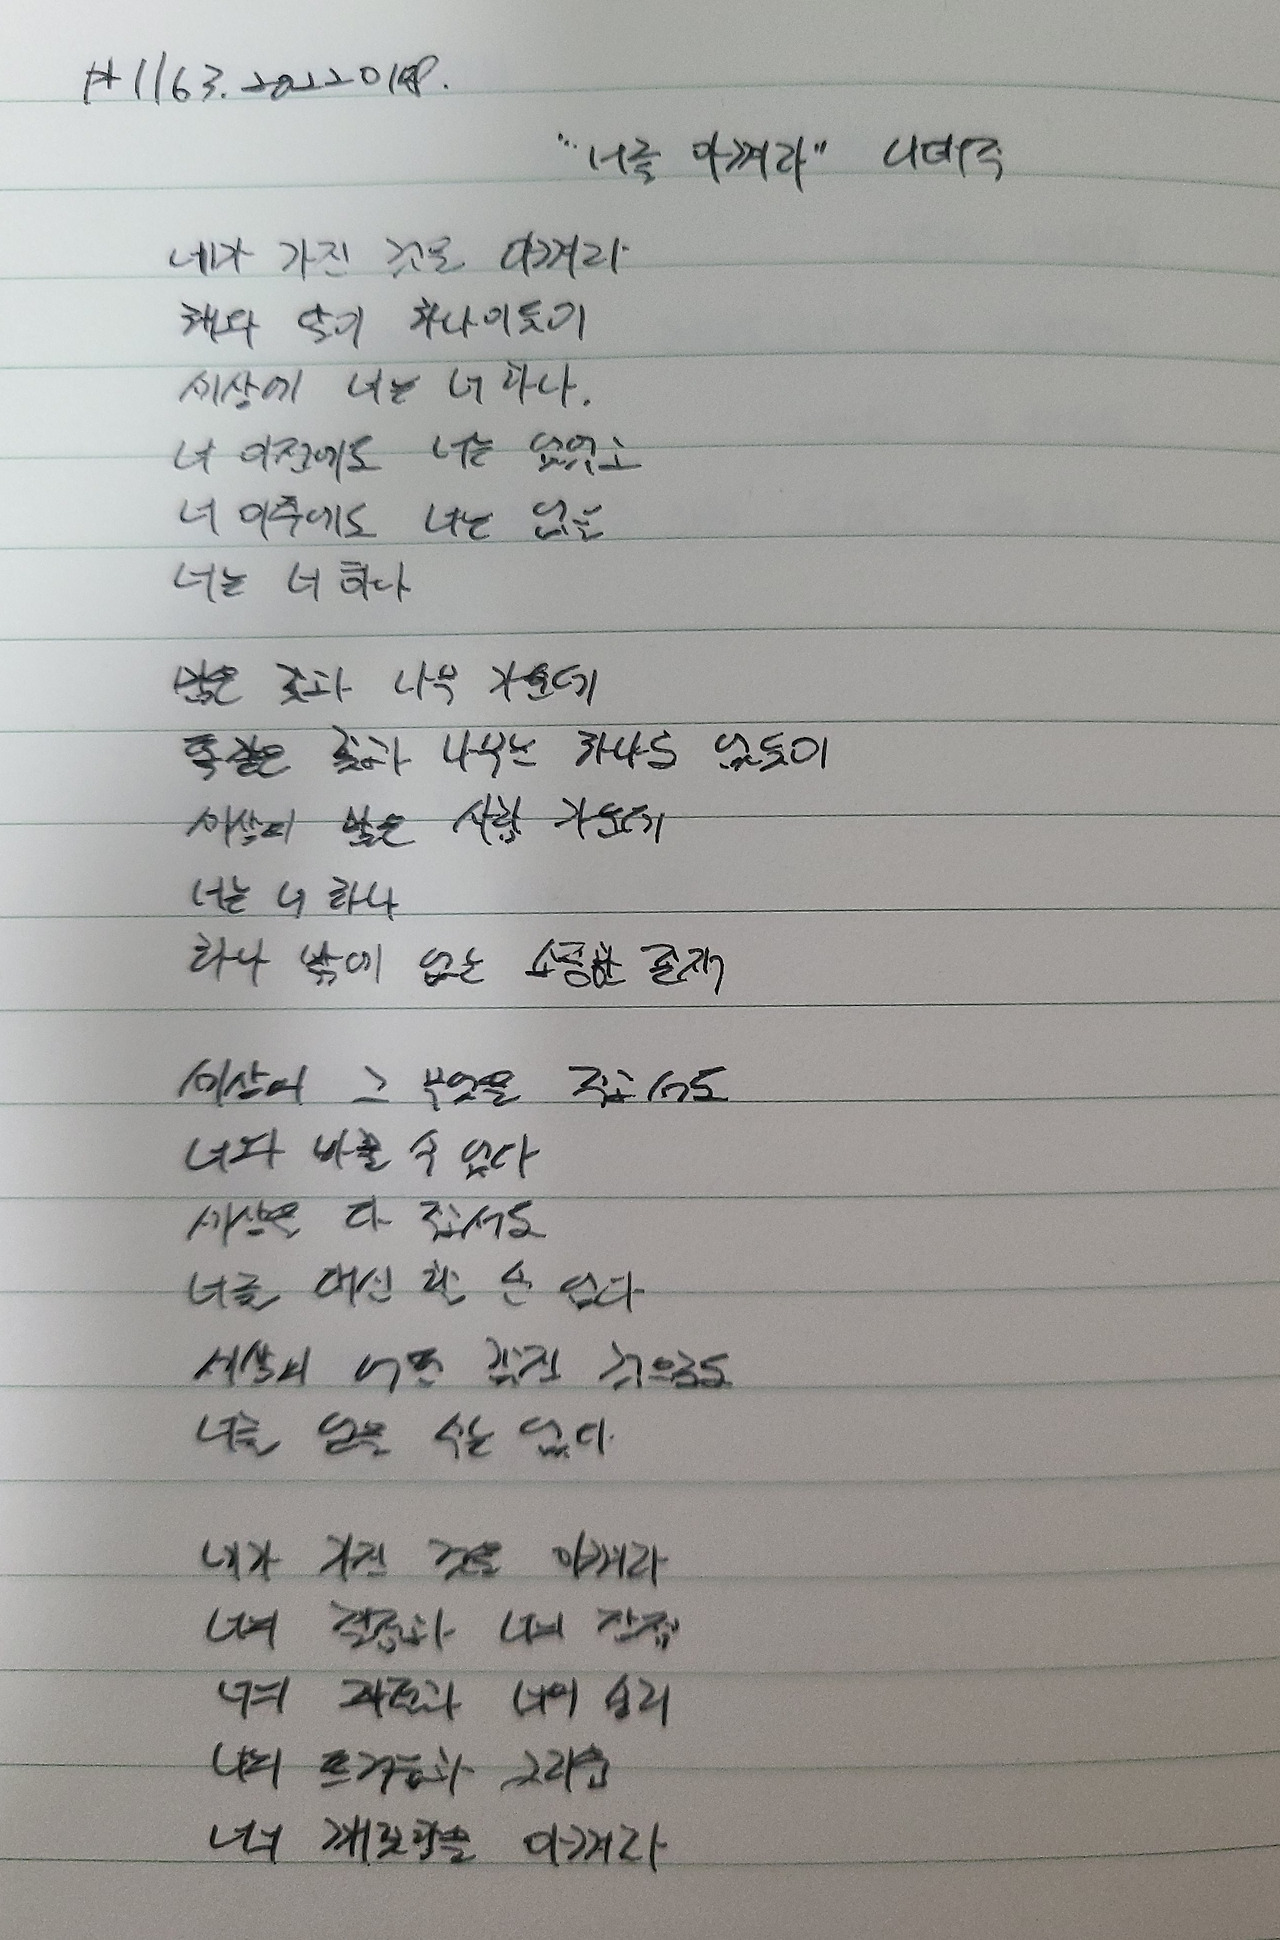 #1163. 20220108.
"너를 아껴라" 나태주
네가 가진 것을 아껴라
해와 달이 하나이듯이
세상에 너는 너 하나.
너 이전에도 너는 없었고
너 이후에도 너는 없을
너는 너 하나
많은 꽃과 나무 가운데
똑같은 꽃과 나무는 하나도 없듯이
세상의 많은 사람 가운데
너는 너 하나
하나 밖에 없는 소중한 존재
세상의 그 무엇을 주고서도
너와 바꿀 수 없다
세상을 다 주고서도
너를 대신 할 순 없다
세상의 어떤 값진 것으로도
너를 얻을 수는 없다.
네가 가진 것을 아껴라
너의 결점과 너의 장점
너의 과오와 너의 승리
너의 뜨거움과 그리움
너의 깨끗함을 아껴라